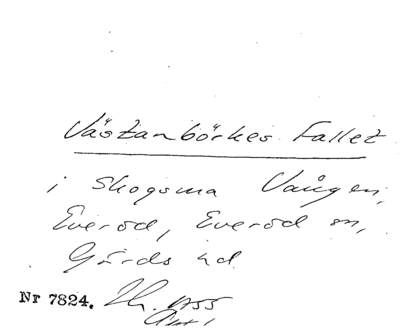 Västanbörkes Fallet
i Skogsma Vången,
Everöd, Everöd sn,
Gärds hd
Nr 7824.